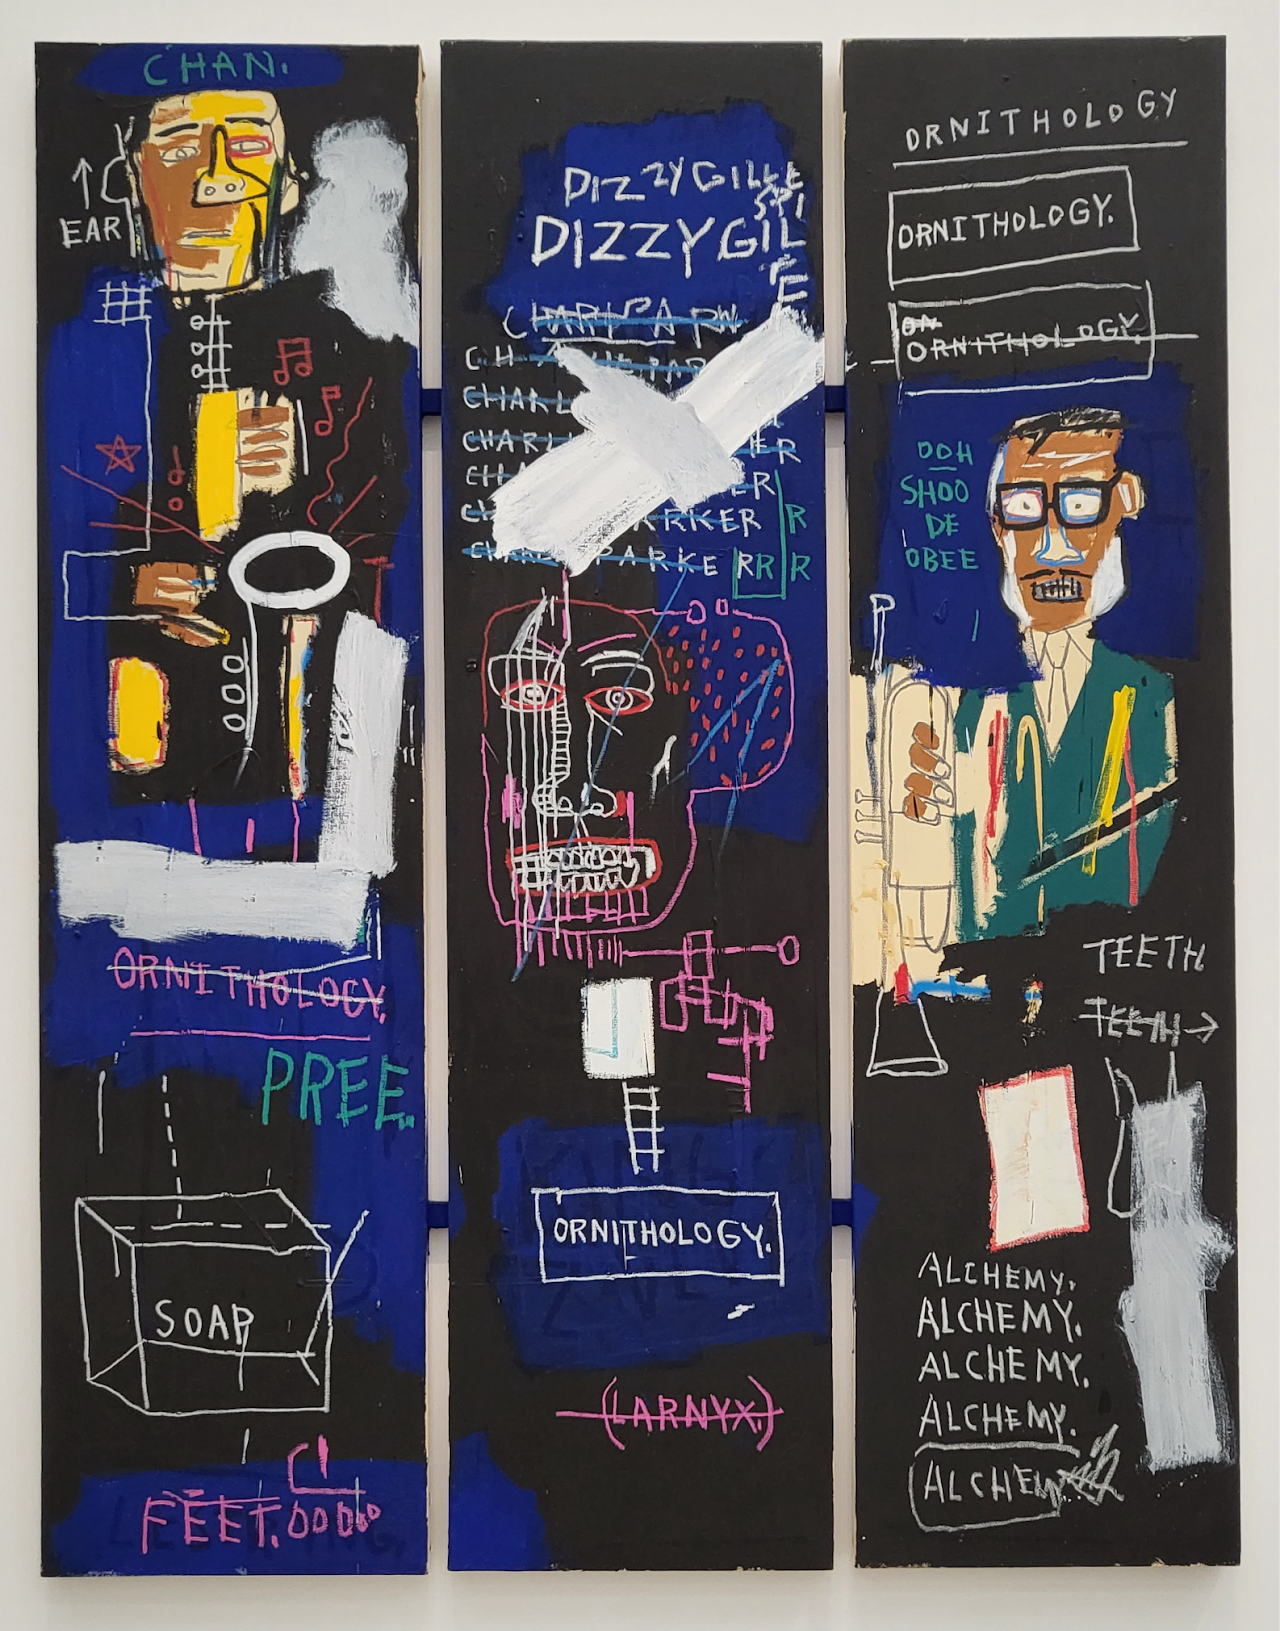 CHAN.
EAR
ORNITHOLOGY.
PREE.
SOAP
FEET.
DIZZYGILLE
SPI
DIZZYGIL
E
E
CHARL
CHARL
PARKER
PARKER
R
R
R
ORNITHOLOGY.
(LARNYX.)
ORNITHOLOGY
ORNITHOLOGY.
ON
ORNITHOLOGY.
OOH
SHOO
DE
OBEE
TEETH
TEETH→
ALCHEMY.
ALCHEMY.
ALCHEMY.
ALCHEMY.
ALCHEMY